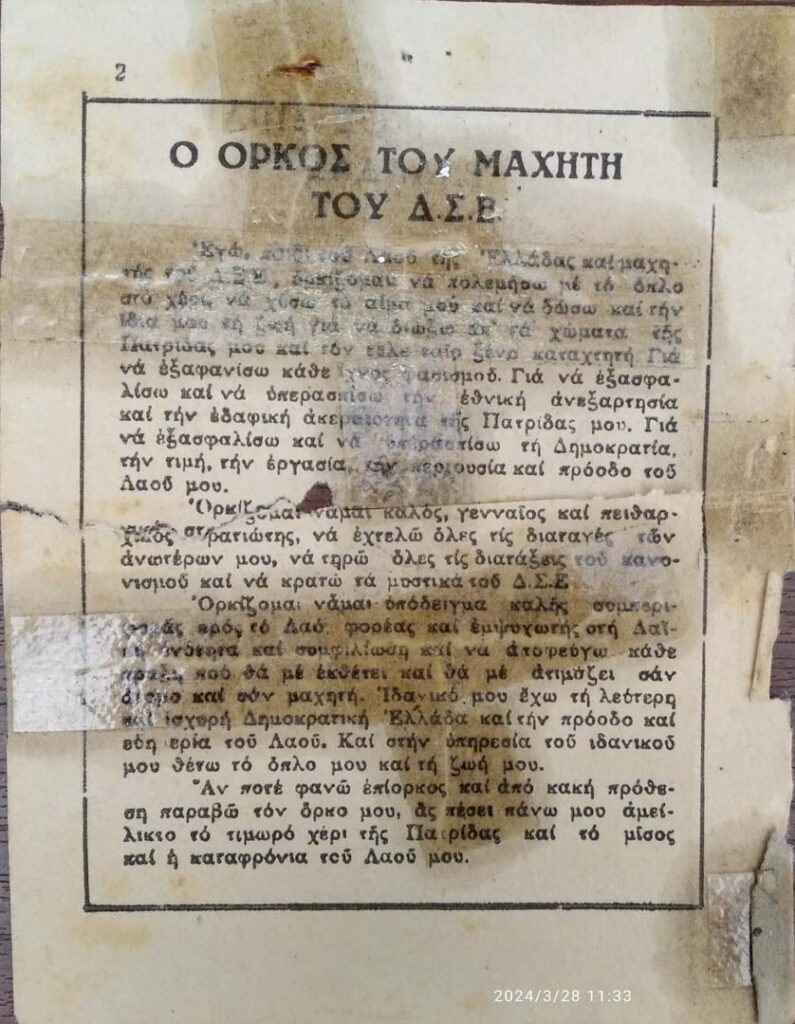 2
Ο ΟΡΚΟΣ ΤΟΥ ΜΑΧΗΤΗ
ΤΟΥ Δ.Σ.Ε.
Ἐγώ, παιδί τοῦ Λαοῦ τῆς Ἑλλάδας καί μαχη-
τής τοῦ Δ.Σ.Ε, ὁρκίζομαι νά πολεμήσω μέ τό ὅπλο
στό χέρι, νά χύσω τό αἷμα μου καί νά δώσω καί τήν
ἴδια μου τή ζωή γιά νά διώξω ἀπ' τά χώματα τῆς
Πατρίδας μου καί τόν τελευταῖο ξένο καταχτητή. Γιά
νά ἐξαφανίσω κάθε ἴχνος φασισμοῦ. Γιά νά ἐξασφα-
λίσω καί νά ὑπερασπίσω τήν ἐθνική ἀνεξαρτησία
καί τήν ἐδαφική ἀκεραιότητα τῆς Πατρίδας μου. Γιά
νά ἐξασφαλίσω καί νά ὑπερασπίσω τή Δημοκρατία,
τήν τιμή, τήν ἐργασία, τήν περιουσία καί πρόοδο τοῦ
Λαοῦ μου.
Ὁρκίζομαι νἆμαι καλός, γενναῖος καί πειθαρ-
χικός στρατιώτης, νά ἐχτελῶ ὅλες τίς διαταγές τῶν
ἀνωτέρων μου, νά τηρῶ ὅλες τίς διατάξεις τοῦ κανο-
νισμοῦ καί νά κρατῶ τά μυστικά τοῦ Δ.Σ.Ε
Ὁρκίζομαι νἆμαι ὑπόδειγμα καλῆς συμπερι-
φορᾶς πρός τό Λαό, φορέας καί ἐμψυχωτής στή Λαϊ-
κή ἑνότητα καί συμφιλίωση καί νά ἀποφεύγω κάθε
πράξη πού θά μέ ἐκθέτει καί θά μέ ἀτιμάζει σάν
ἄτομο καί σάν μαχητή. Ἰδανικό μου ἔχω τή λεύτερη
καί ἰσχυρή Δημοκρατική Ἑλλάδα καί τήν πρόοδο καί
εὐημερία τοῦ Λαοῦ. Καί στήν ὑπηρεσία τοῦ ἰδανικοῦ
μου θέτω τό ὅπλο μου καί τή ζωή μου.
Ἄν ποτέ φανῶ ἐπίορκος καί ἀπό κακή πρόθε-
ση παραβῶ τόν ὅρκο μου, ἄς πέσει πάνω μου ἀμεί-
λικτο τό τιμωρό χέρι τῆς Πατρίδας καί τό μῖσος
καί ἡ καταφρόνια τοῦ Λαοῦ μου.
2024/3/28 11:33